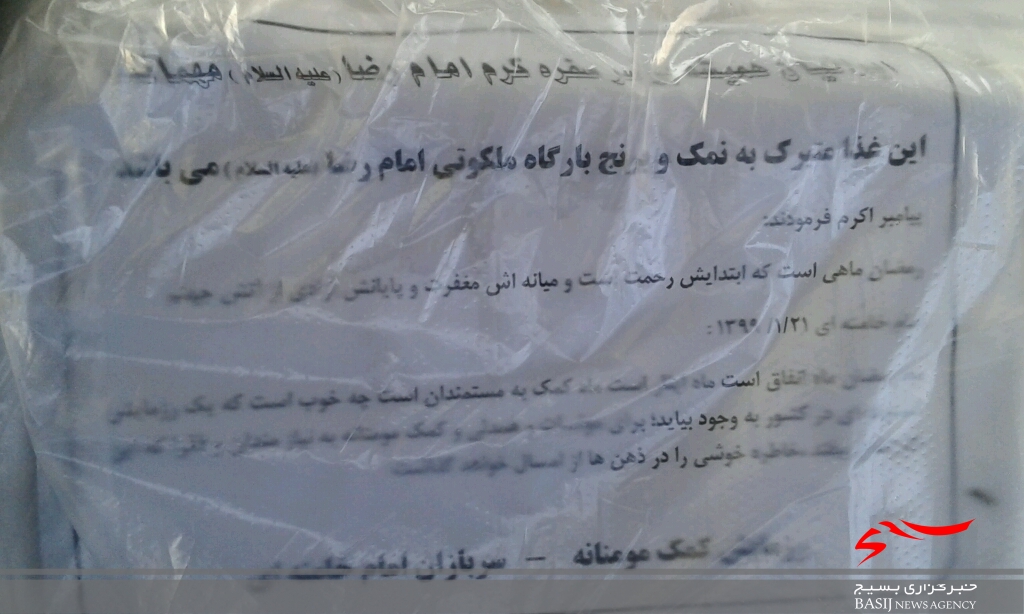 سفره کرم امام رضا (علیه السلام)
این غذا متبرک به نمک و برنج بارگاه ملکوتی امام رضا (علیه السلام) می باشد
پیامبر اکرم فرمودند:
رمضان ماهی است که ابتدایش رحمت است و میانه اش مغفرت و پایانش آزادی از آتش جهنم
خامنه ای ۱۳۹۹/۱/۲۱:
رمضان ماه انفاق است ماه ایثار است ماه کمک به مستمندان است چه خوب است که یک رزمایش
در کشور به وجود بیاید؛ برای مواسات و همدلی و کمک مومنانه به نیاز مندان و فقرا که
خاطره خوشی را در ذهن ها از امسال خواهد گذاشت
رزمایش کمک مومنانه - سربازان امام خامنه ای
بسیج
خبرگزاری بسیج
BASIJ NEWS AGENCY